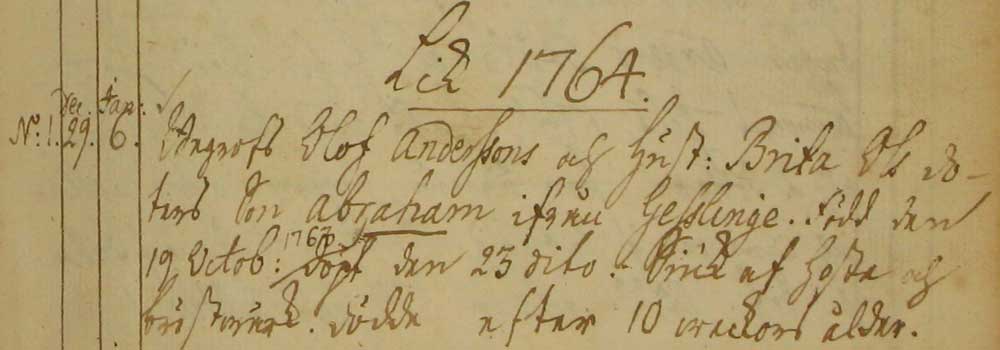 Lick 1764.
Dec. Jan:
No. 1. 29. 6. Begrofs Olof Anderssons och Hust: Brita Ols do-
ters Son Abraham ifrån Gesslinge. Född den
19 Octob: 1763 Döpt den 23 dito. Siuck af Hosta och
bröstwärk. Dödde efter 10 weckors ålder.